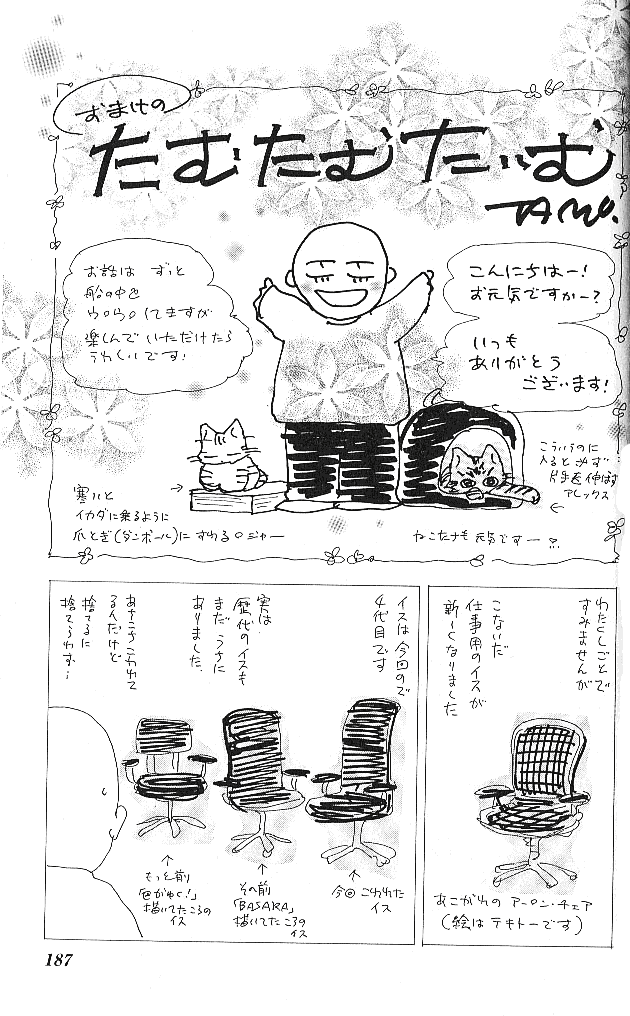 おまけの
たむたむたいむ
TAMU.
こんにちはー!
お元気ですかー?
いつも
ありがとう
ございます!
お話は ずっと
船の中を
ウロウロしてますが
楽しんでいただけたら
うれしいです!
こういうのに
入ると必ず
片手を伸ばす
アレックス
寒いと
イカダに乗るように
爪とぎ(ダンボール)に すわるロジャー
ねこたちも 元気ですー
わたくしごとで
すみませんが
こないだ
仕事用のイスが
新しくなりました
あこがれの アーロン・チェア
(絵は テキトーです)
イスは 今回ので
4代目です
実は
歴代のイスも
まだ うちに
ありました。
あちこちこわれて
るんだけど
捨てるに
捨てられず…
今回 こわれた
イス
その前
「BASARA」
描いてたころの
イス
もっと前
描いてたころの
イス
187